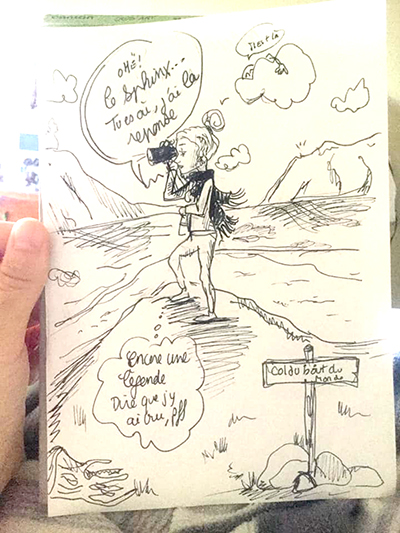 OHÉ!
Le Sphinx...
Tu es où, j'ai la
réponse
Encore une
légende
Dire que j'y
ai cru, pff
Col du bout du
monde